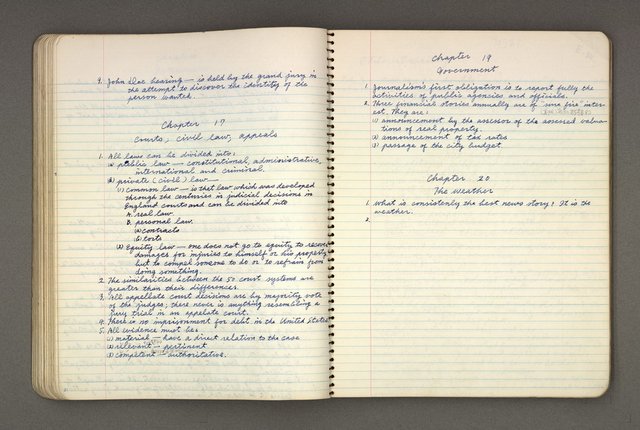 9. John Doe hearing — is held by the grand jury in
the attempt to discover the identity of the
person wanted.
Chapter 17
Courts, civil law, appeals
1. All laws can be divided into:
(a) public law — constitutional, administrative,
international and criminal.
(b) private (civil) law —
(1) Common law — is that law which was developed
through the centuries in judicial decisions in
England courts and can be divided into
A. real law
B. personal law.
(a) contracts
(b) torts
(2) Equity law — one does not go to equity to recover
damages for injuries to himself or his property
but to compel someone to do or to refrain from
doing something.
2. The similarities between the 50 court systems are
greater than their differences.
3. All appellate court decisions are by majority vote
of the judges; there never is anything resembling a
jury trial in an appelate court.
4. There is no imprisonment for debt in the United States
5. All evidence must be:
(1) material — have a direct relation to the case
(2) relevant — pertinent
(3) competent — authoritative.
Chapter 19
Government
1. Journalism's first obligation is to report fully the
activities of public agencies and officials.
2. Three financial stories annually are of "sure fire" inter-
est. They are:
1) announcement by the assessor of the assessed valua-
tions of real property.
2) announcement of tax rates
3) passage of the city budget.
Chapter 20
The Weather
1. What is consistenly the best news story? It is the
weather.
2.